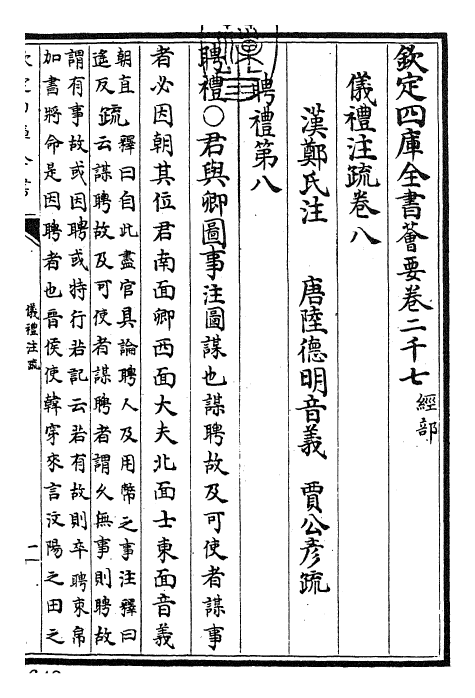 欽定四庫全書薈要卷二千七 經部
儀禮注疏卷八
漢鄭氏注 唐陸德明音義 賈公彦疏
聘禮第八
聘禮○君與卿圖事注圖謀也謀聘故及可使者謀事
者必因朝其位君南面卿西面大夫北面士東面音義
朝直
遥反疏釋曰自此盡官具論聘人及用幣之事注釋曰
云謀聘故及可使者謀聘者謂久無事則聘故
謂有事故或因聘或特行若記云若有故則卒聘束帛
加書將命是因聘者也晉侯使韓穿來言汶陽之田之
儀禮注疏